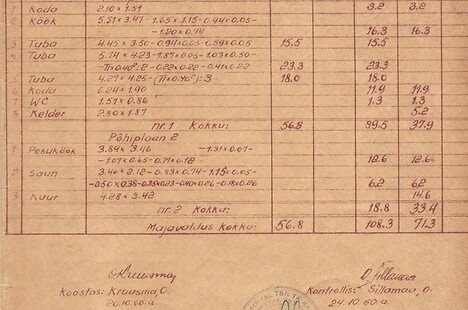 Koda 2.10 × 1.51 3.2 3.2
2 Köök 5.31 × 3.47 - 1.65 × 1.15 - 0.94 × 0.05 -
- 1.20 × 0.74 16.3 16.3
3 Tuba 4.45 × 3.50 - 0.94 × 0.05 - 0.59 × 0.05 15.5 15.5
4 Tuba 5.74 × 4.23 - 1.87 × 0.05 - 1.03 × 0.50 -
- π × 0.40² : 2 - 0.22 × 0.22 - 0.41 × 0.22 23.3 23.3
5 Tuba 4.27 × 4.25 - (π × 0.40²) : 3 18.0 18.0
6 Koda 6.24 × 1.90 11.9 11.9
7 WC 1.51 × 0.86 1.3 1.3
8 Kelder 2.80 × 1.87 5.2
nr. 1 kokku: 56.8 89.5 37.9
Põhiplaan 2
1 Pesuköök 3.84 × 3.46 - 1.31 × 0.07 -
- 1.07 × 0.65 - 0.71 × 0.18 12.6 12.6
2 Saun 3.40 × 2.12 - 0.83 × 0.74 - 1.15 × 0.05 -
- 0.50 × 0.38 - 0.35 × 0.23 - 0.40 × 0.26 - 0.18 × 0.26 6.2 6.2
3 Kuur 4.28 × 3.42 14.6
nr. 2 kokku: 18.8 33.4
Majavaldus kokku: 56.8 108.3 71.3
Koostas: Kruusma, O. Kontrollis: Sillamaa, O.
20.10.60.a. 24.10.60.a.